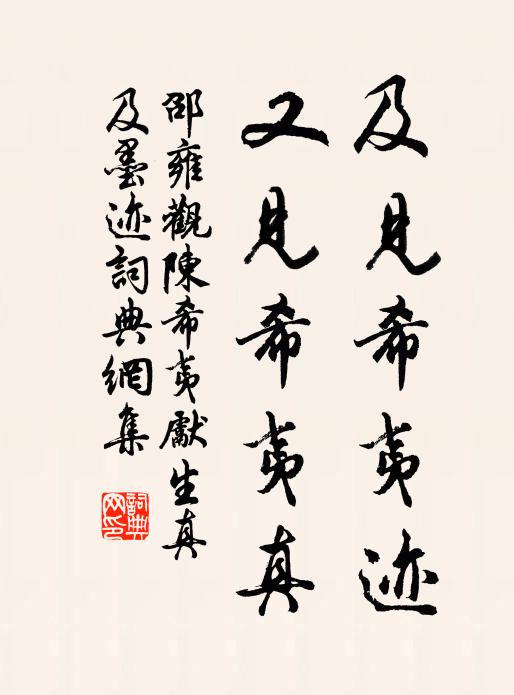 及見希夷迹
又見希夷真
邵雍觀陳希夷獻生真
及墨迹詞典網集
詞典
网印